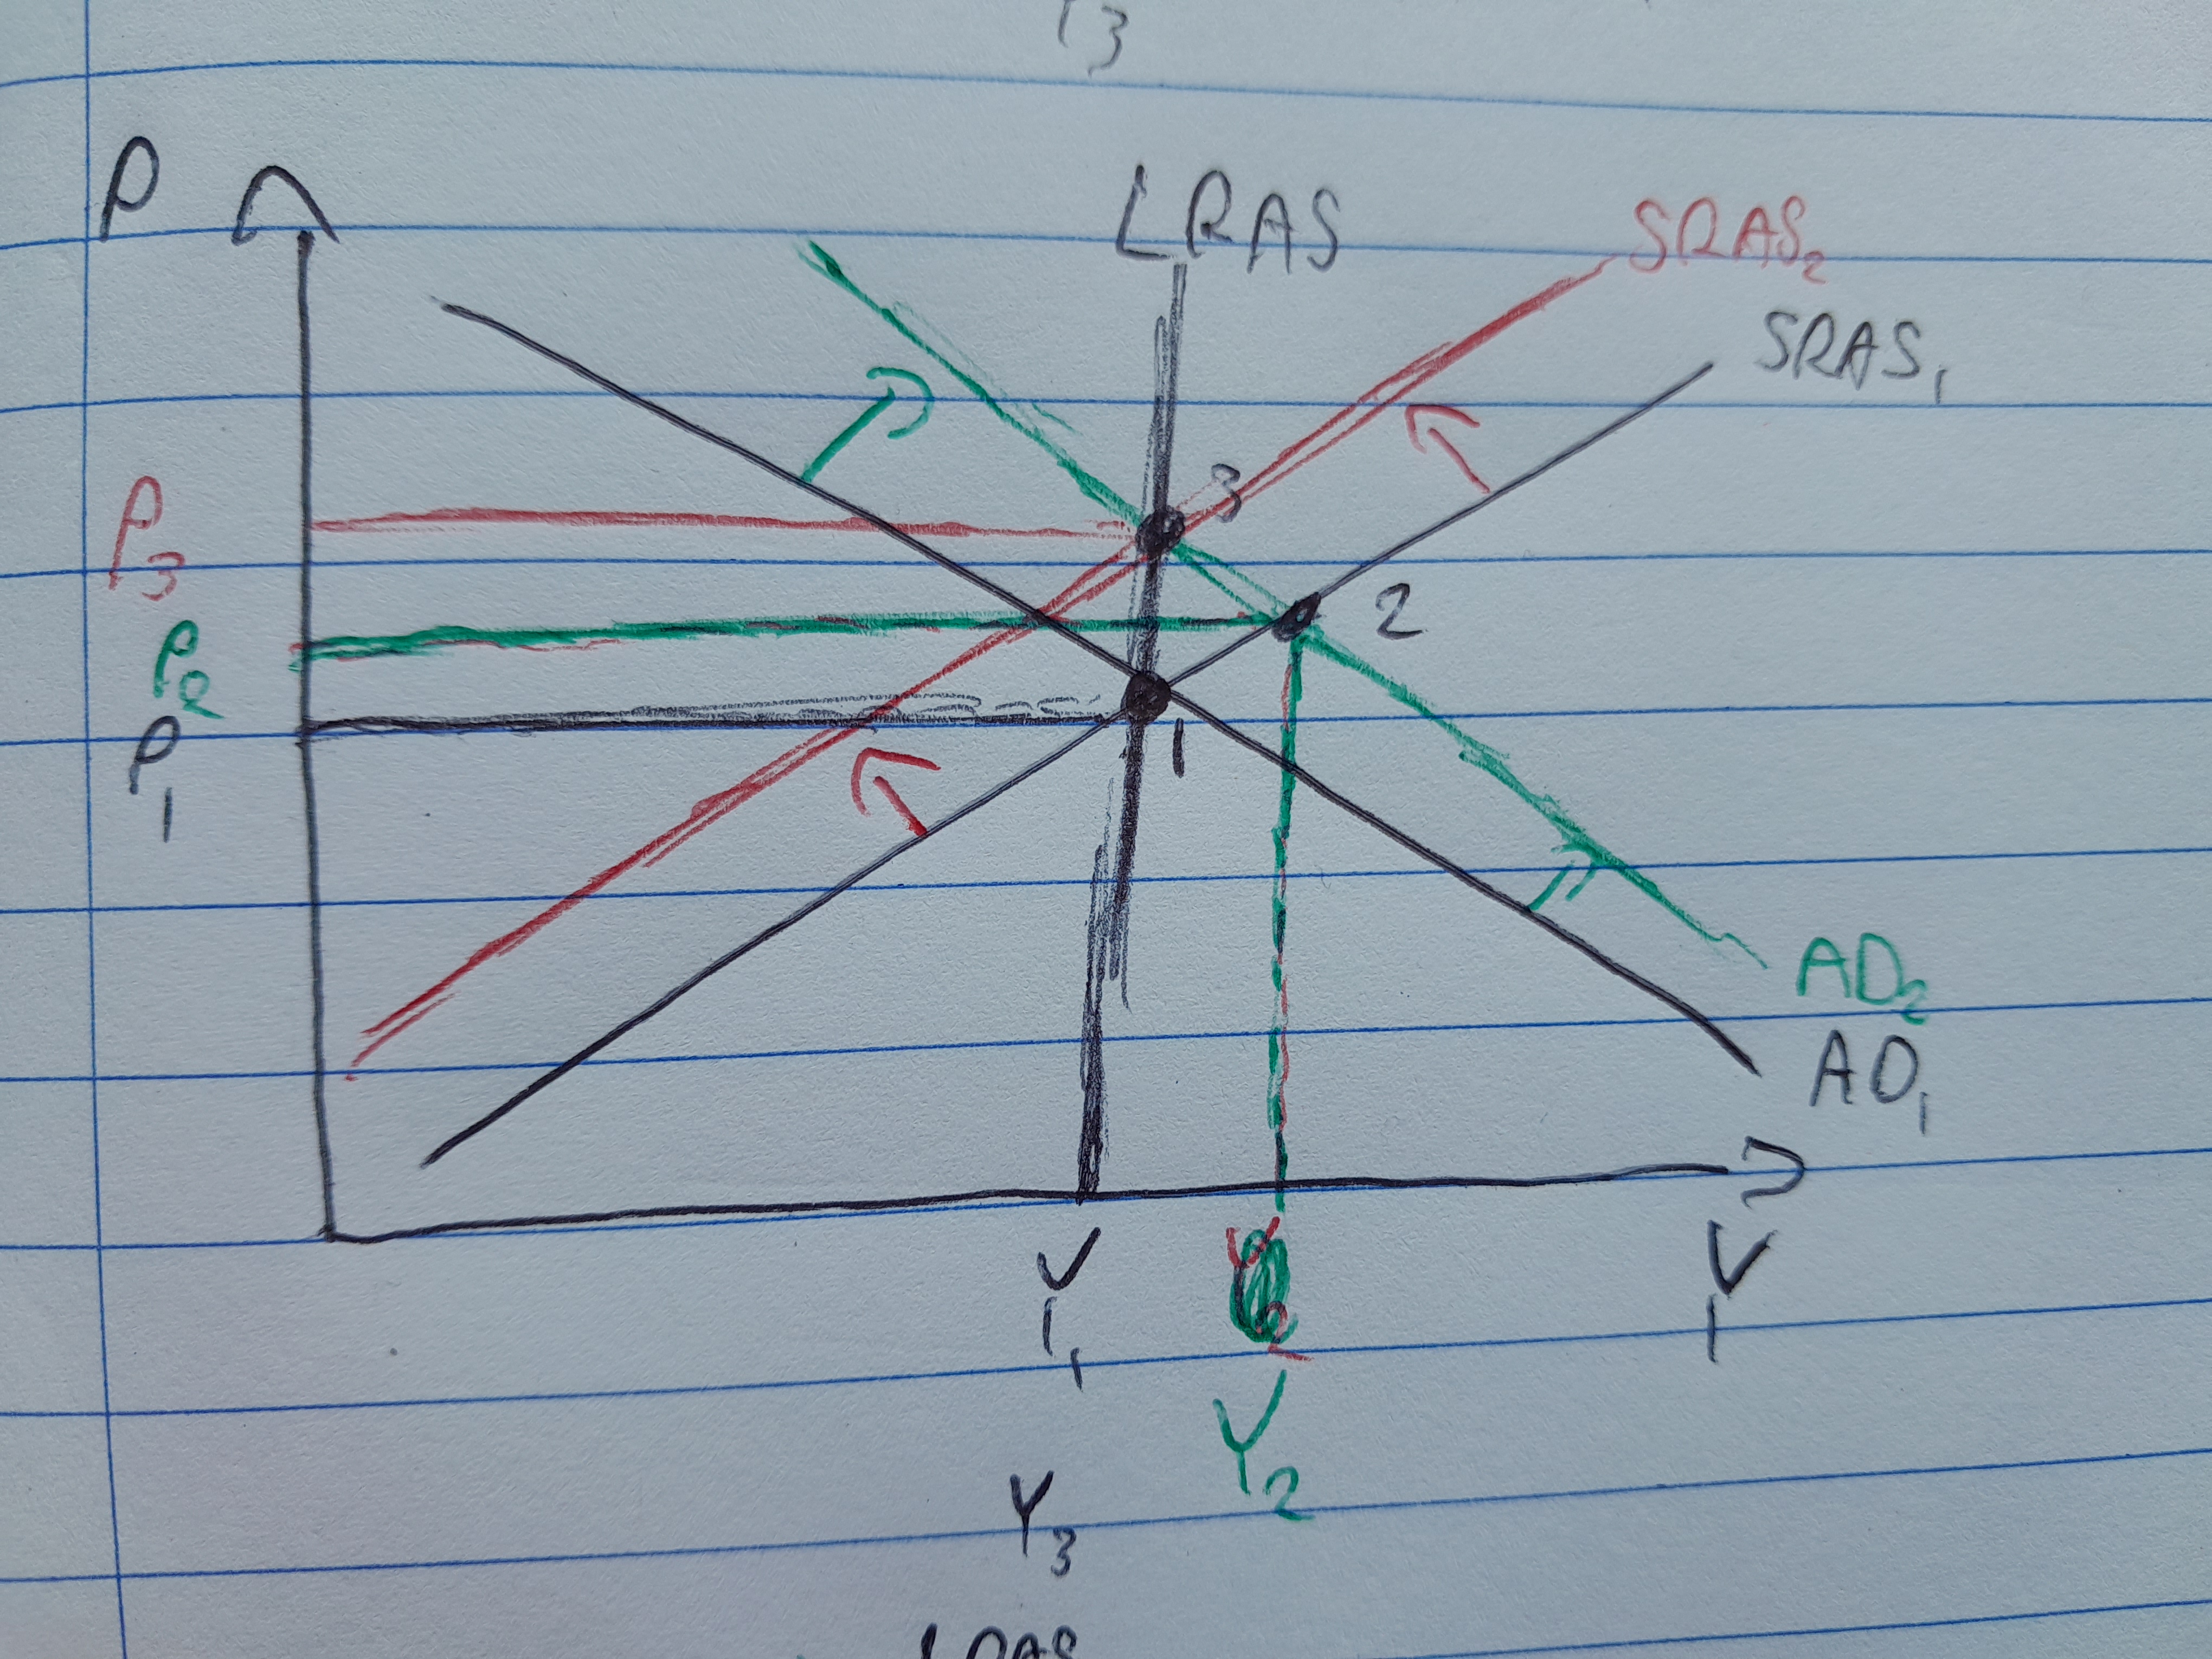 P
LRAS
SRAS₂
SRAS₁
3
P₃
2
P₂
P₁
1
AD₂
AD₁
Y₁
Y
Y₂
Y₃
LRAS